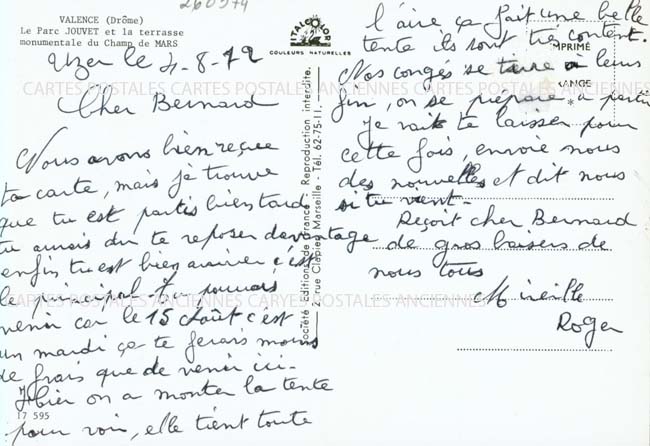 260974
VALENCE (Drôme)
Le Parc JOUVET et la terrasse
monumentale du Champ de MARS
ITALCOLOR
COULEURS NATURELLES
IMPRIMÉ
CARTES POSTALES ANCIENNES CARTES POSTALES ANCIENNES
Uzer le 4-8-72
Cher Bernard
Nous avons bien reçue
ta carte, mais je trouve
que tu est partis bien tard
tu aurais du te reposer davantage
enfin tu est bien arriver c'est
le principal tu pouvais
venir car le 15 Août c'est
un mardi ça te ferais moins
de frais que de venir ici-
Hier on a monter la tente
pour voir, elle tient toute
17 595
Société Editions de France - Reproduction interdite.
rue Clapier Marseille - Tél. 62-75-11.
l'aire ça fait une belle
tente ils sont tres content.
Nos congés se tire à leurs
fin, on se prépare à partir
Je vais te laisser pour
cette fois, envoie nous
des nouvelles et dit nous
si tu vient-
Reçoit cher Bernard
de gros baisers de
nous tous
Mireille
Roger
CARTES POSTALES ANCIENNES CARYES POSTALES ANCIENNES